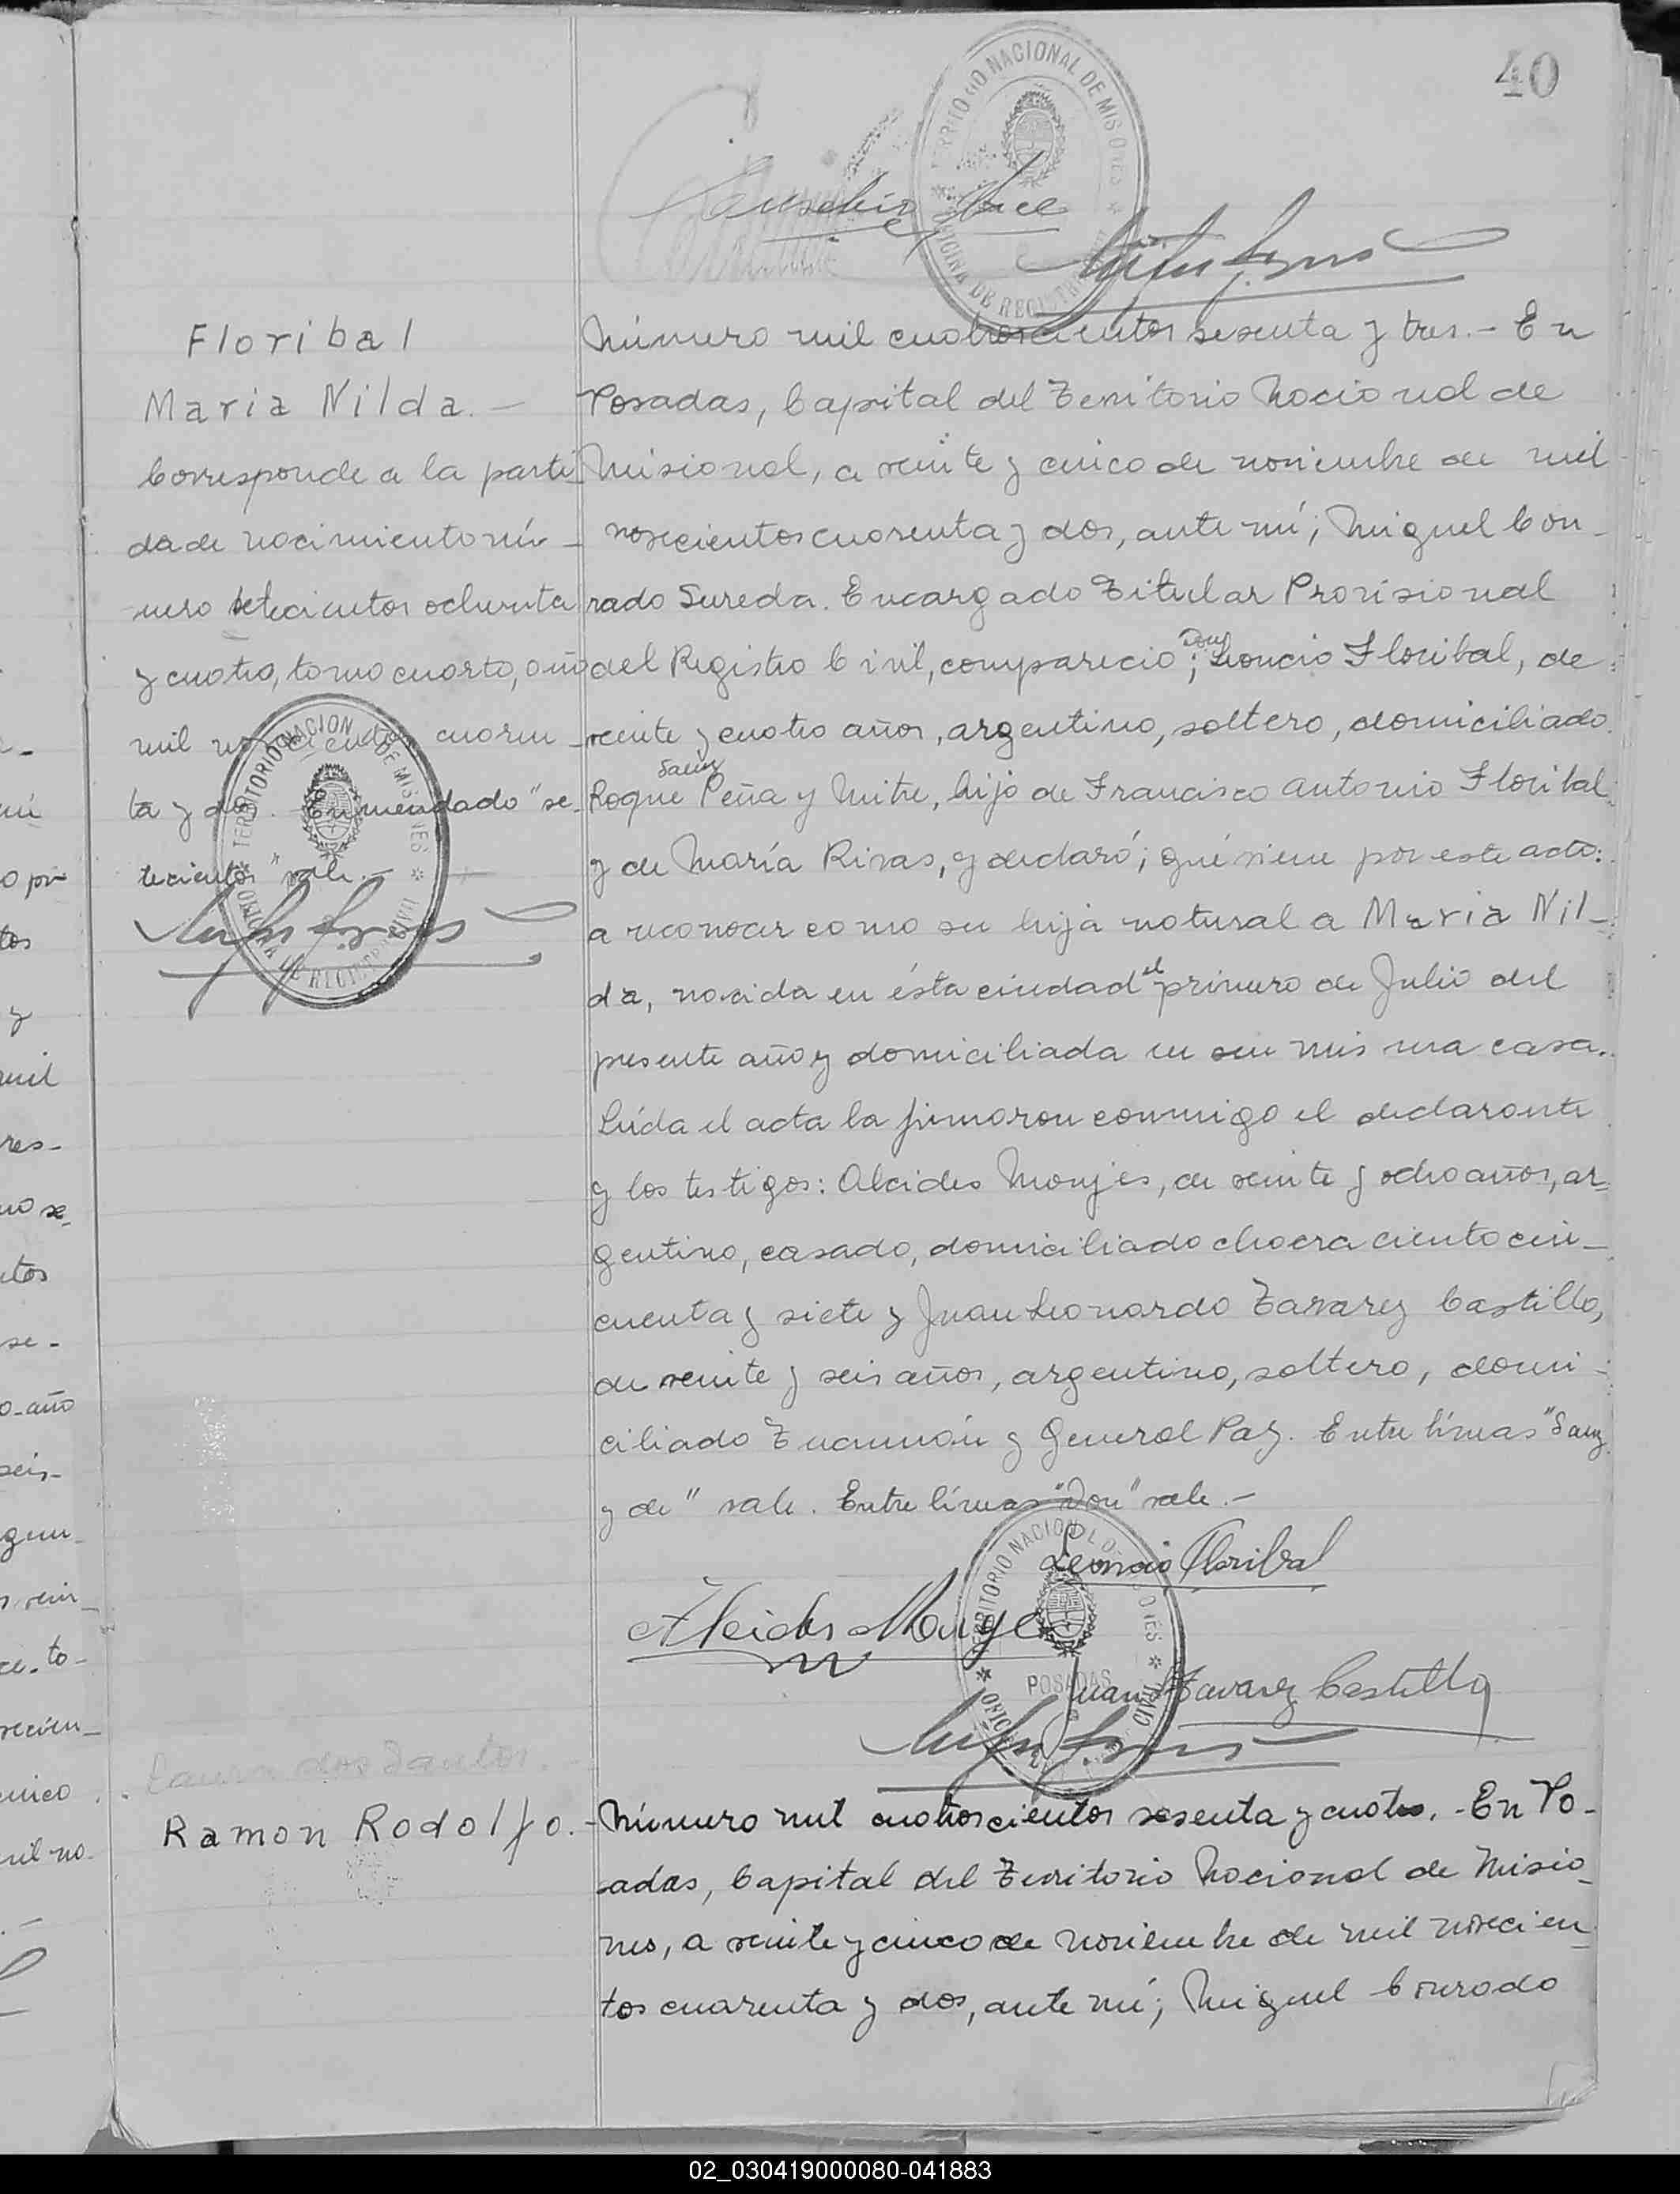 40
TERRITORIO NACIONAL DE MISIONES
OFICINA DE REGISTRO
Eusebio
Floribal
Maria Nilda. —
Corresponde a la parti-
da de nacimiento nú-
mero setecientos ochenta
y cuatro, tomo cuarto, año
mil novecientos cuaren-
ta y dos. Enmendado "se-
tecientos" vale.—
TERRITORIO NACIONAL DE MISIONES
OFICINA DE REGISTRO CIVIL
Número mil cuatrocientos sesenta y tres.— En
Posadas, Capital del Territorio Nacional de
Misional, a veinte y cinco de noviembre de mil
novecientos cuarenta y dos, ante mí; Miguel Con-
rado Sureda. Encargado Titular Provisional
del Registro Civil, comparecio; Don Leoncio Floribal, de
veinte y cuatro años, argentino, soltero, domiciliado
Roque Saenz Peña y Mitre, hijo de Francisco Antonio Floribal
y de María Rivas, y declaró; qué viene por este acto:
a reconocer como su hija natural a Maria Nil-
da, nacida en ésta ciudad el primero de Julio del
presente año y domiciliada en su misma casa.
Leída el acta la firmaron conmigo el declarante
y los testigos: Alcides Monjes, de veinte y ocho años, ar-
gentino, casado, domiciliado chacra ciento cin-
cuenta y siete y Juan Leonardo Tavarez Castillo,
de veinte y seis años, argentino, soltero, domi-
ciliado Tucumán y General Paz. Entre líneas "Saenz
y de" vale. Entre líneas "Don" vale.—
Leoncio Floribal
Alcides Monjes
Juan L Tavarez Castillo
TERRITORIO NACIONAL DE MISIONES
POSADAS
OFICINA CIVIL
Laura dos Santos.
Ramon Rodolfo.—
Número mil cuatrocientos sesenta y cuatro.- En Po-
sadas, Capital del Territorio Nacional de Misio-
nes, a veinte y cinco de noviembre de mil novecien-
tos cuarenta y dos, ante mí; Miguel Conrado
02_030419000080-041883